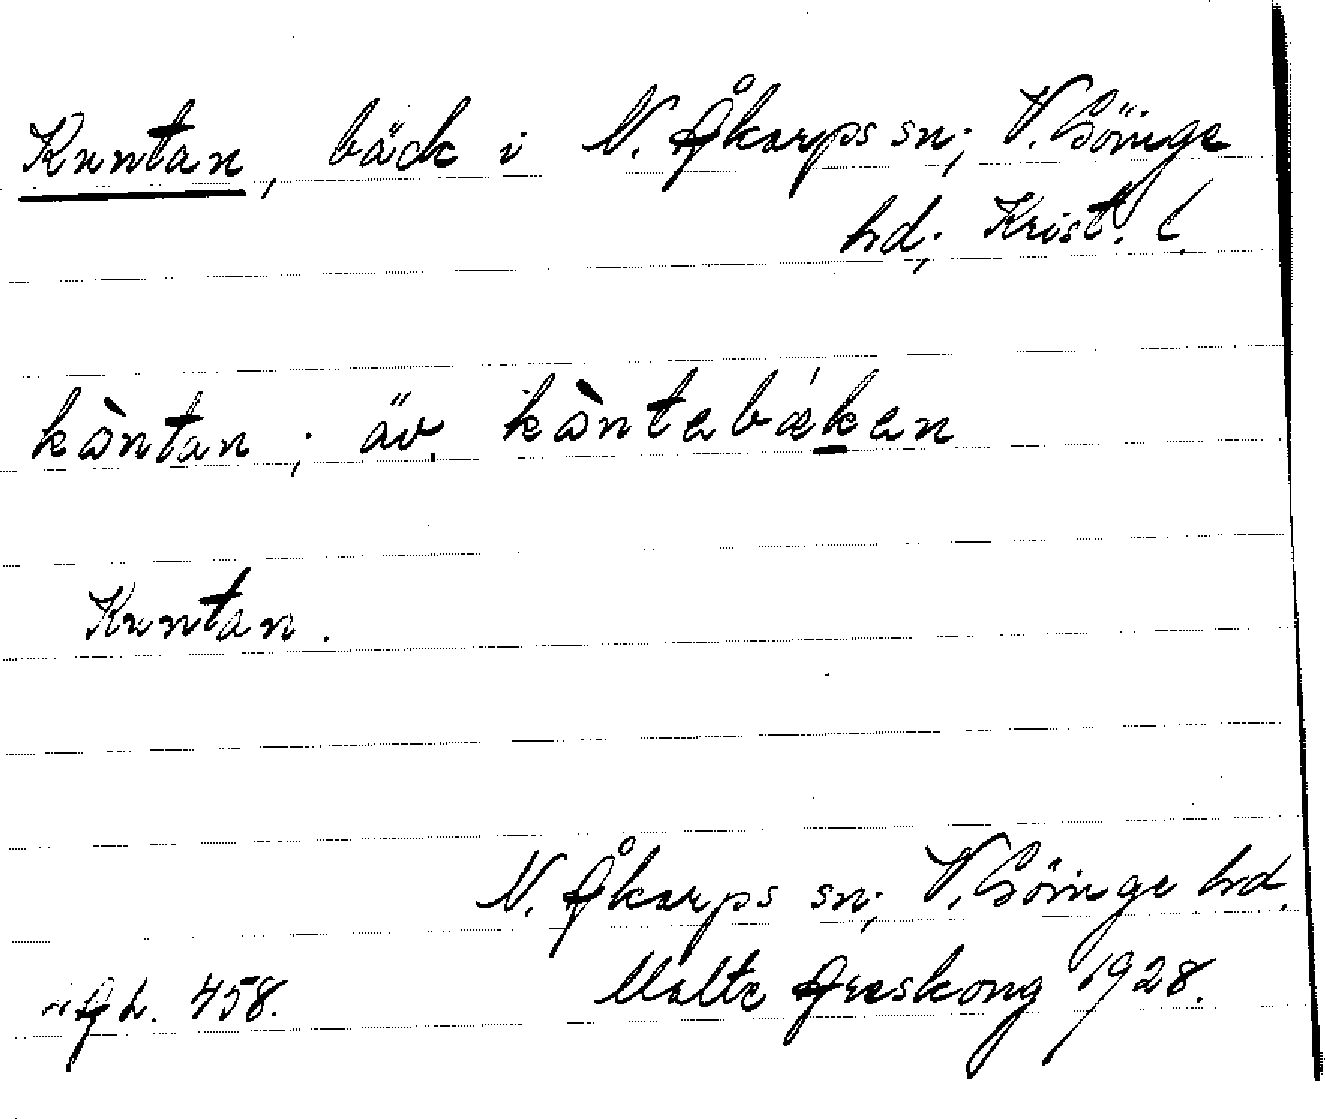 Kuntan, bäck i N. Åkarps sn; V. Göinge
hd; Krist. l.
kòntan; äv. kòntabækan
Kuntan.
N. Åkarps sn; V. Göinge hd.
Malte Areskong 1928.
458.